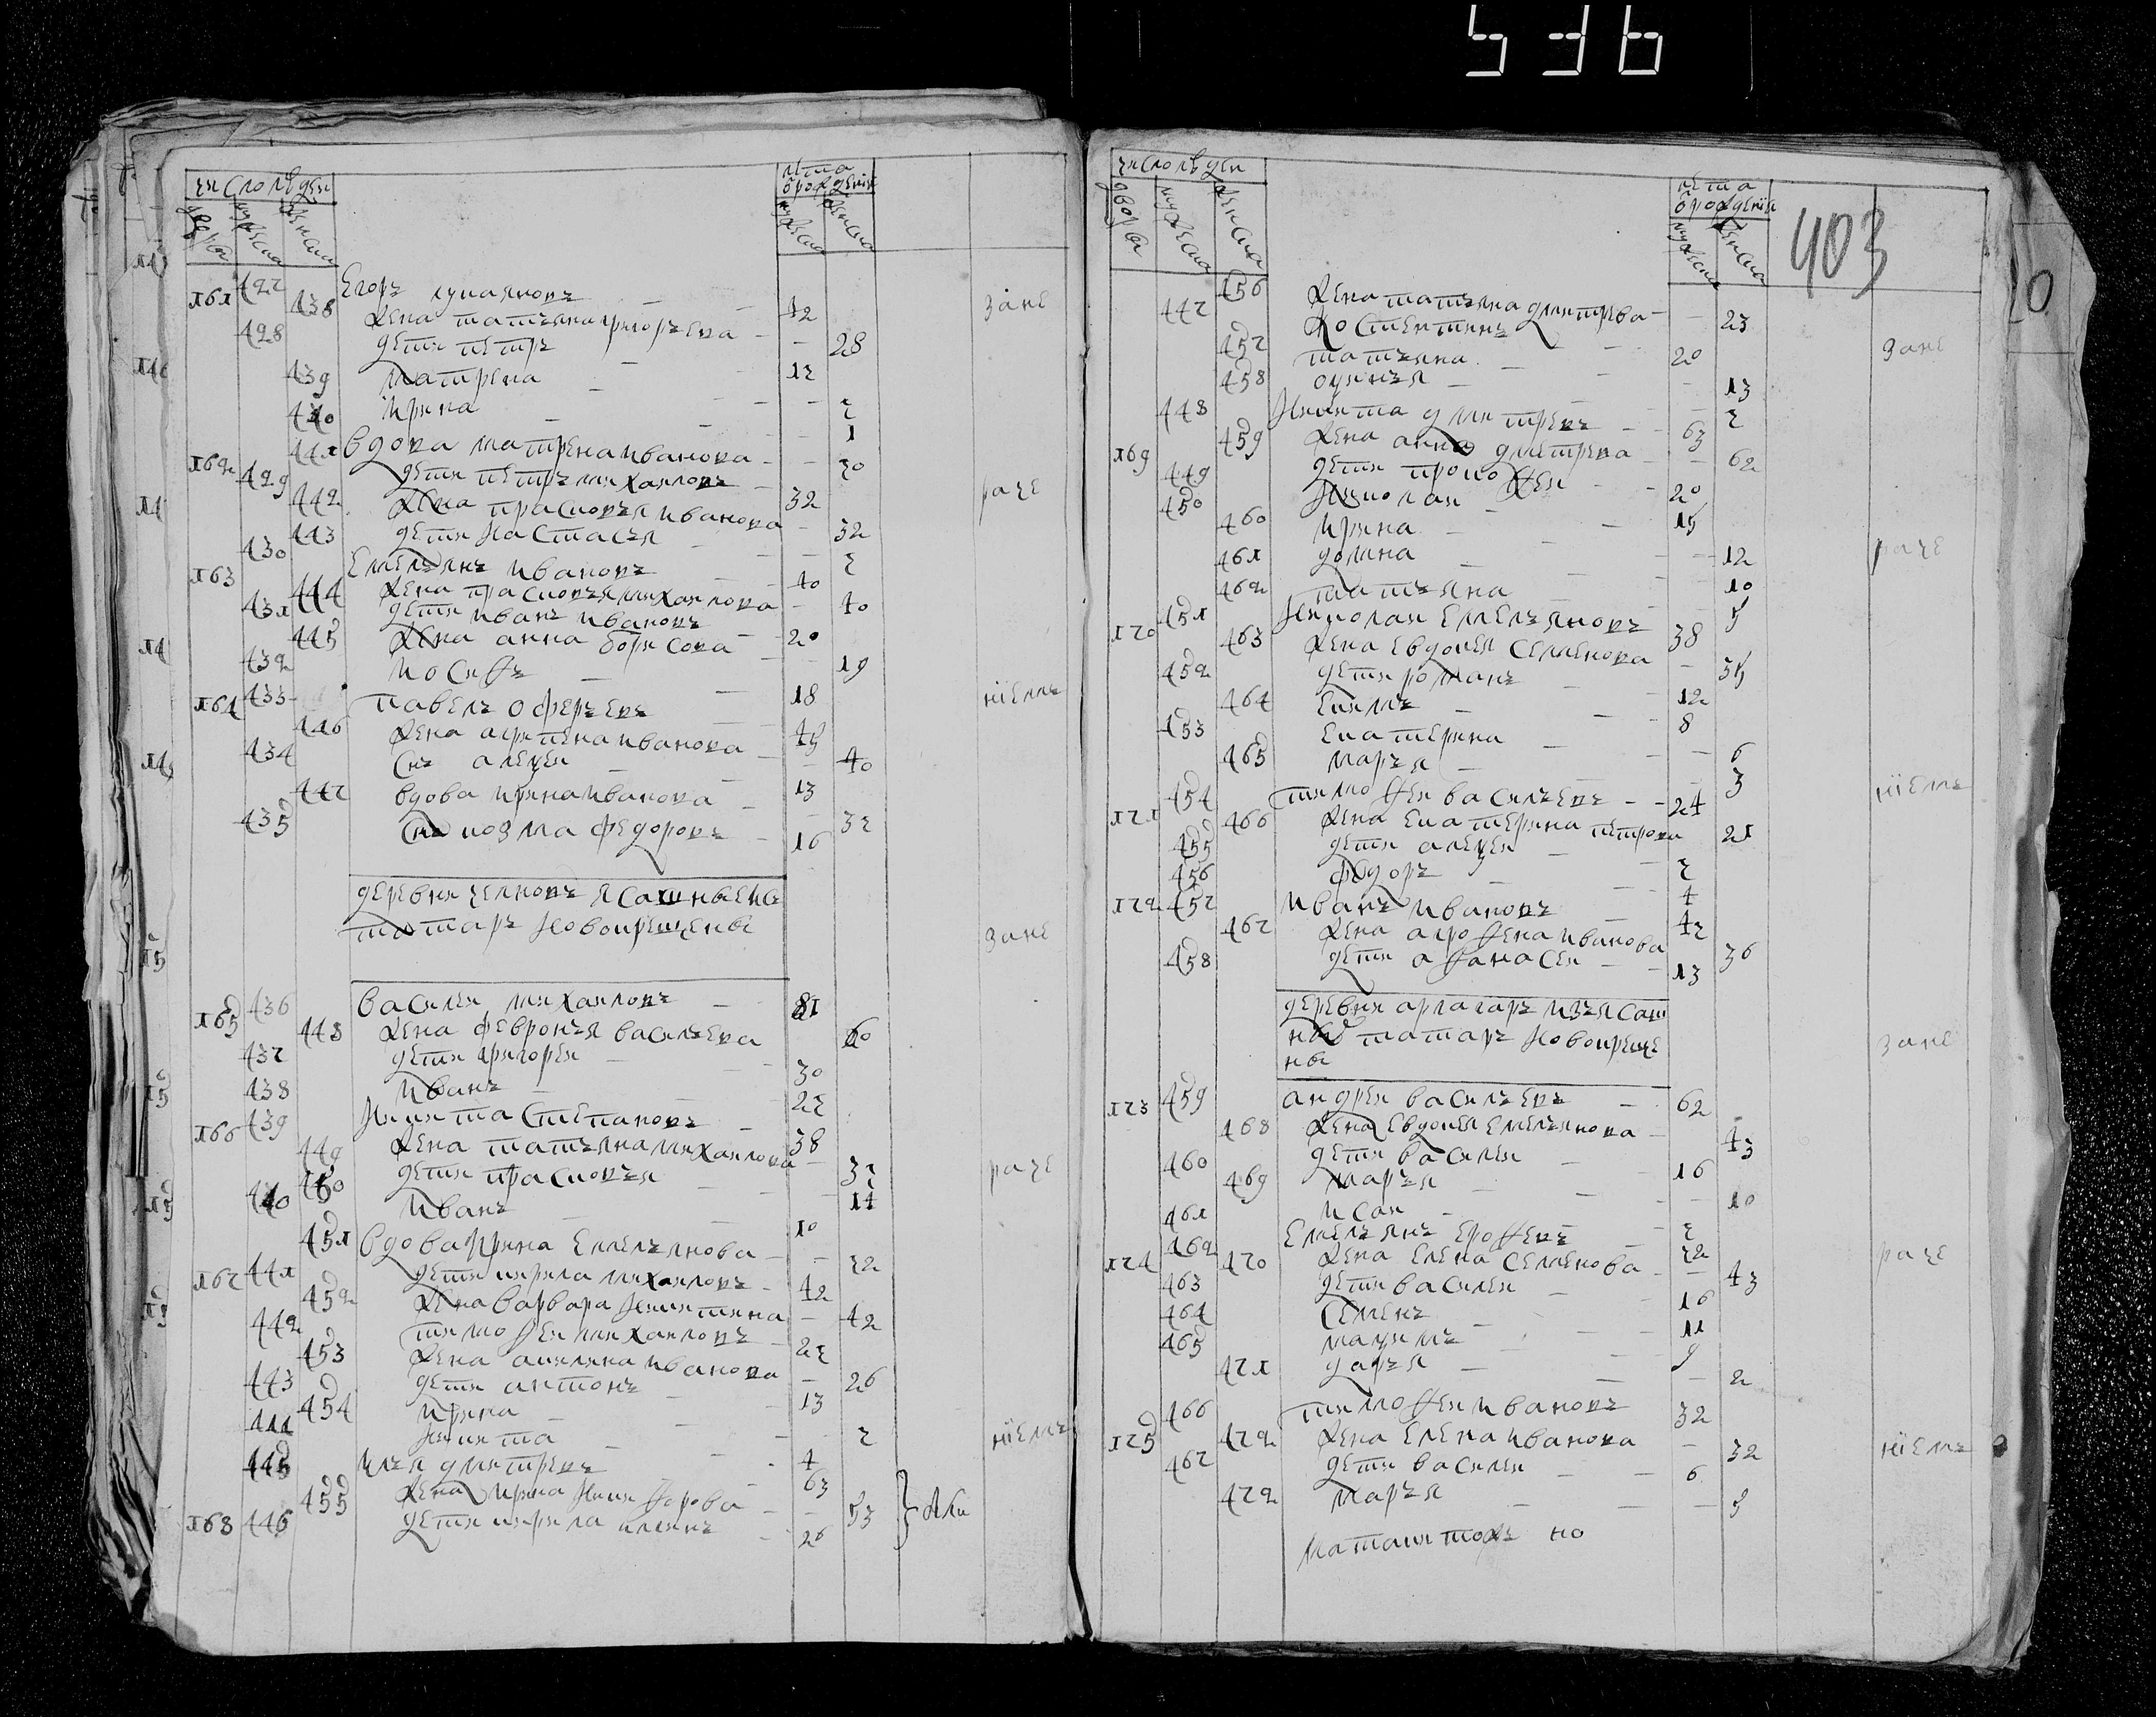 536
403
число людей
двори мужеска женска
лета от рождения
мужеска женска
161 427 Егоръ лукаяновъ — 42
438 жена татьяна григорьева — 28
428 дети петръ — 17
439 матрена — 7
440 ирина — 1
441 вдова матрена иванова — 70
162 429 дети петръ михаиловъ — 32
442 жена прасковья иванова — 32
443 дети настасья — 7
163 430 Емельянъ ивановъ — 40
444 жена прасковья михаилова — 40
431 дети иванъ ивановъ — 20
445 жена анна борисова — 19
432 иосифъ — 18
164 433 павелъ оферьевъ — 45
446 жена агрипена иванова — 40
434 снъ алеѯей — 13
447 вдова ирина иванова — 37
435 снъ козма федоровъ — 16
деревня челковъ ясашныеиз
татаръ новокрещены
165 436 василей михаиловъ — 81
448 жена февронья васильева — 60
437 дети григорей — 30
438 иванъ — 27
166 439 никита степановъ — 38
449 жена татьяна михаилова — 37
450 дети прасковья — 14
440 иванъ — 10
451 вдова ирина Емельянова — 72
167 441 дети кирила михаиловъ — 42
452 жена варвара никитина — 42
442 тимофей михаиловъ — 27
453 жена акилина иванова — 26
443 дети антонъ — 13
454 ирина — 7
444 никита — 4
445 илья дмитревъ — 63
455 жена ирина никифорова — 53
168 446 дети кирила ильинъ — 26
зане
раче
ніемъ
зане
раче
ніемъ
число людей
двори мужеска женска
лета от рождения
мужеска женска
456 жена татьяна дмитрева — 23
447 костентинъ — 20
457 татьяна — 13
458 — 7
448 никита дмитревъ — 63
169 459 жена анна дмитрева — 62
449 дети прокофей — 20
450 николаи — 15
460 ирина — 12
461 домна — 10
462 татьяна — 5
170 451 николаи Емельяновъ — 38
463 жена Евдокея семенова — 35
452 дети романъ — 12
464 — 8
453 Екатерина — 6
465 марья — 3
171 454 тимофей васильевъ — 24
466 жена Екатерина петрова — 21
455 дети алеѯей — 7
456 федоръ — 4
172 457 иванъ ивановъ — 47
467 жена агрофена иванова — 36
458 дети афанасеи — 13
деревня арлагаръ изъясаш
ныхъ татаръ новокреще
ны
173 459 андреи васильевъ — 62
468 жена Евдокея Емельянова — 43
460 дети василеи — 16
469 марья — 10
461 исаи — 7
174 462 Емельянъ Ерофеевъ — 72
470 жена Елена семенова — 43
463 дети василеи — 16
464 семенъ — 11
465 маѯимъ — 9
471 дарья — 2
175 466 тимофей ивановъ — 32
472 жена Елена иванова — 32
467 дети василеи — 6
472 марья — 5
зане
раче
ніемъ
зане
раче
ніемъ